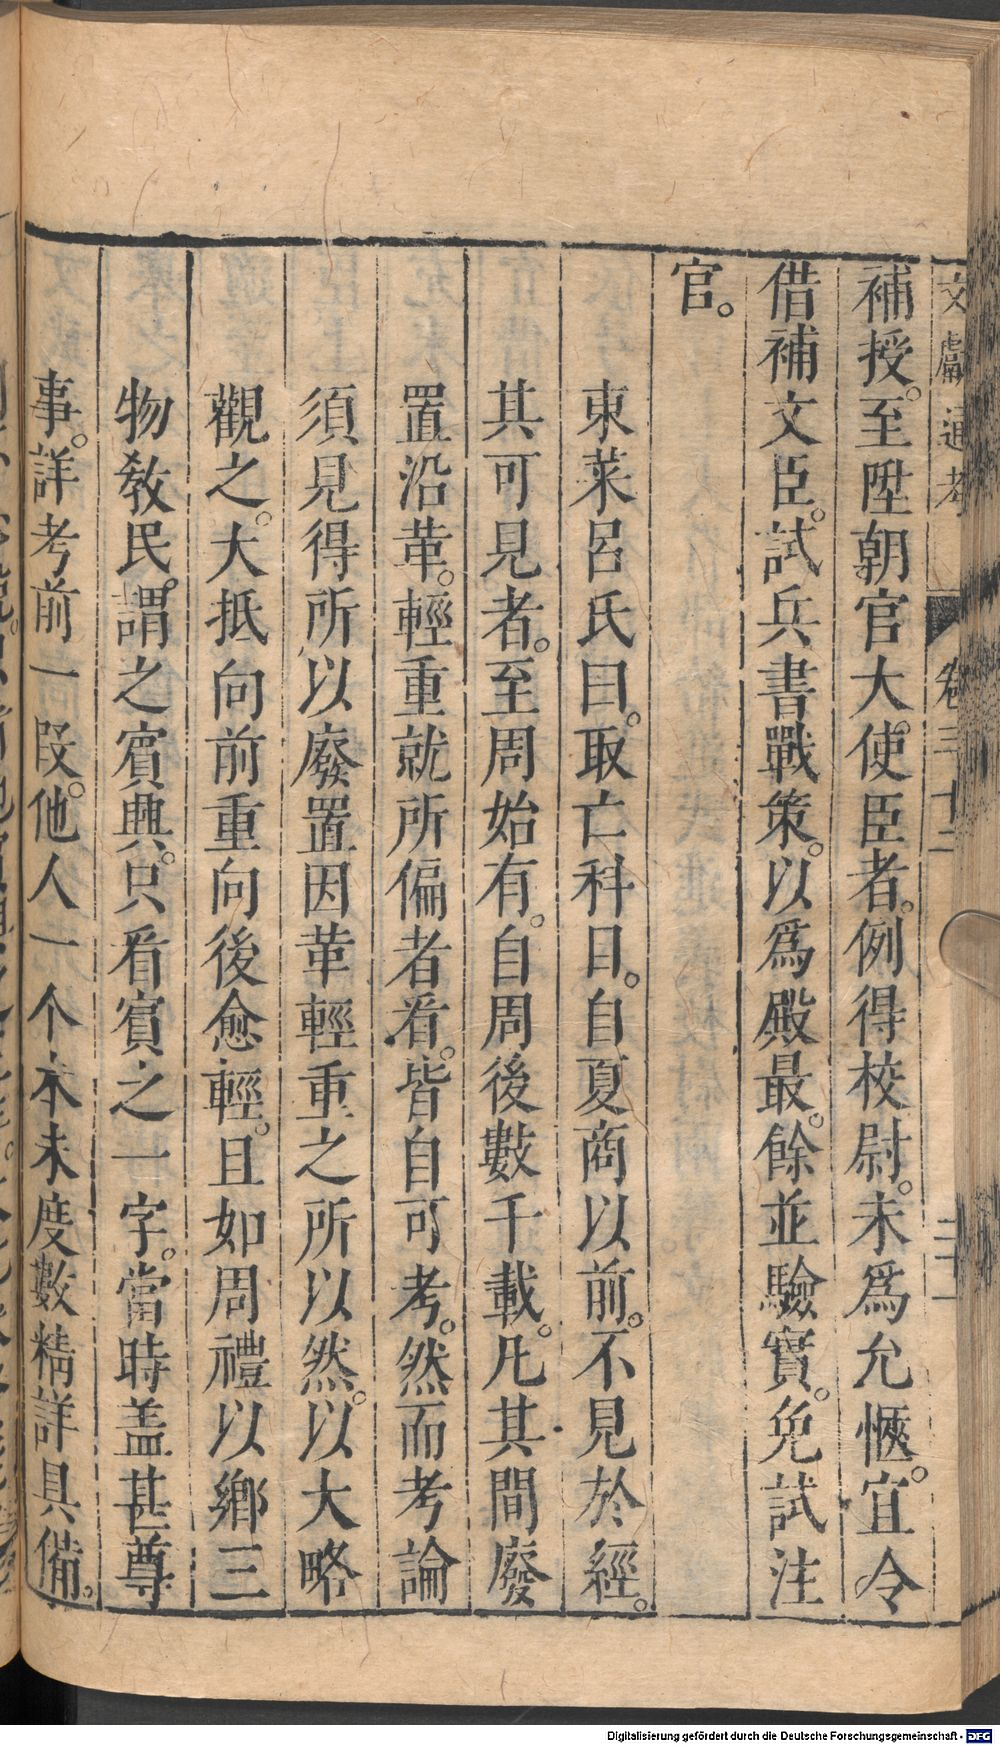 文獻通考 卷三十二 二十一
補授。至陞朝官大使臣者。例得校尉。未爲允愜。宜令
借補文臣。試兵書戰策。以爲殿最。餘並驗實。免試注
官。
東萊呂氏曰。取亡科日。自夏商以前。不見於經。
其可見者。至周始有。自周後數千載。凡其間廢
置沿革。輕重就所偏者看。皆自可考。然而考論
須見得所以廢置因革輕重之所以然。以大略
觀之。大抵向前重向後愈輕。且如周禮以鄉三
物敎民。謂之賓興。只看賓之一字。當時盖甚尊
事。詳考前一段。他人一个未未度數精詳具備。
Digitalisierung gefördert durch die Deutsche Forschungsgemeinschaft - DFG